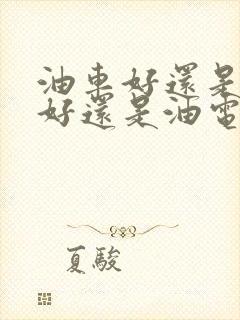 油車好還是
好還是油電
夏駿